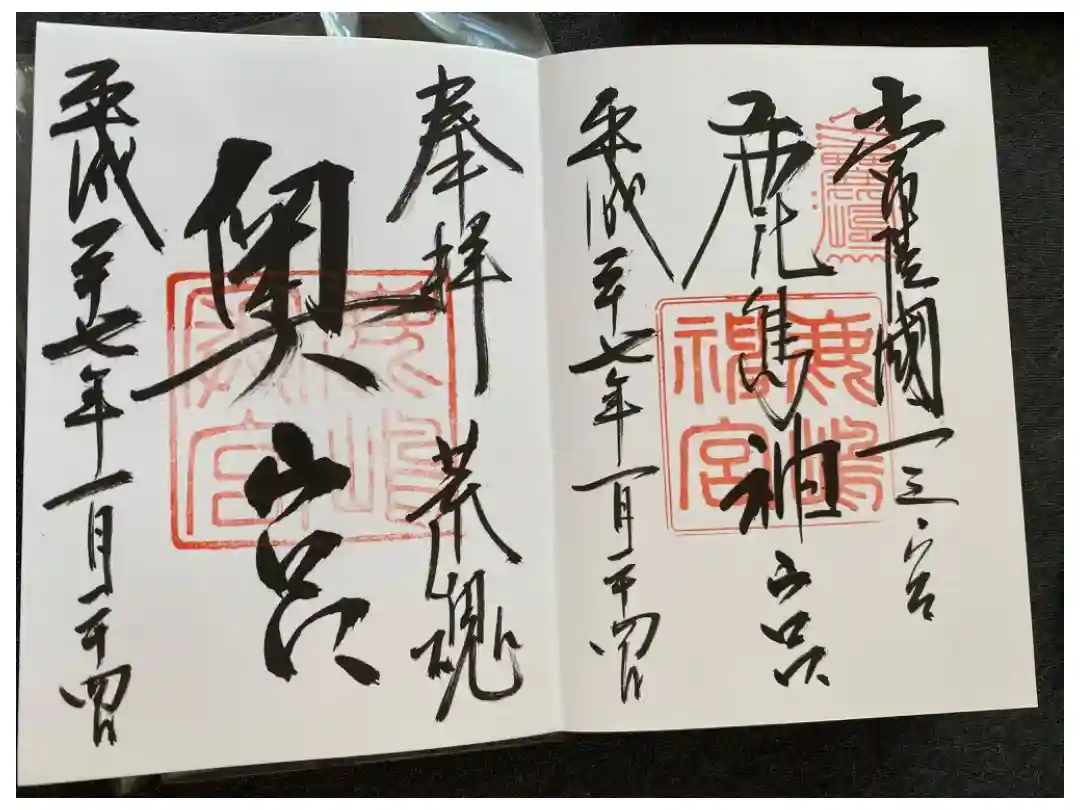 常陸國一之宮
鹿島神宮
平成二十七年一月二十四日
鹿嶋神宮
奉拝 荒魂
奥宮
平成二十七年一月二十四日